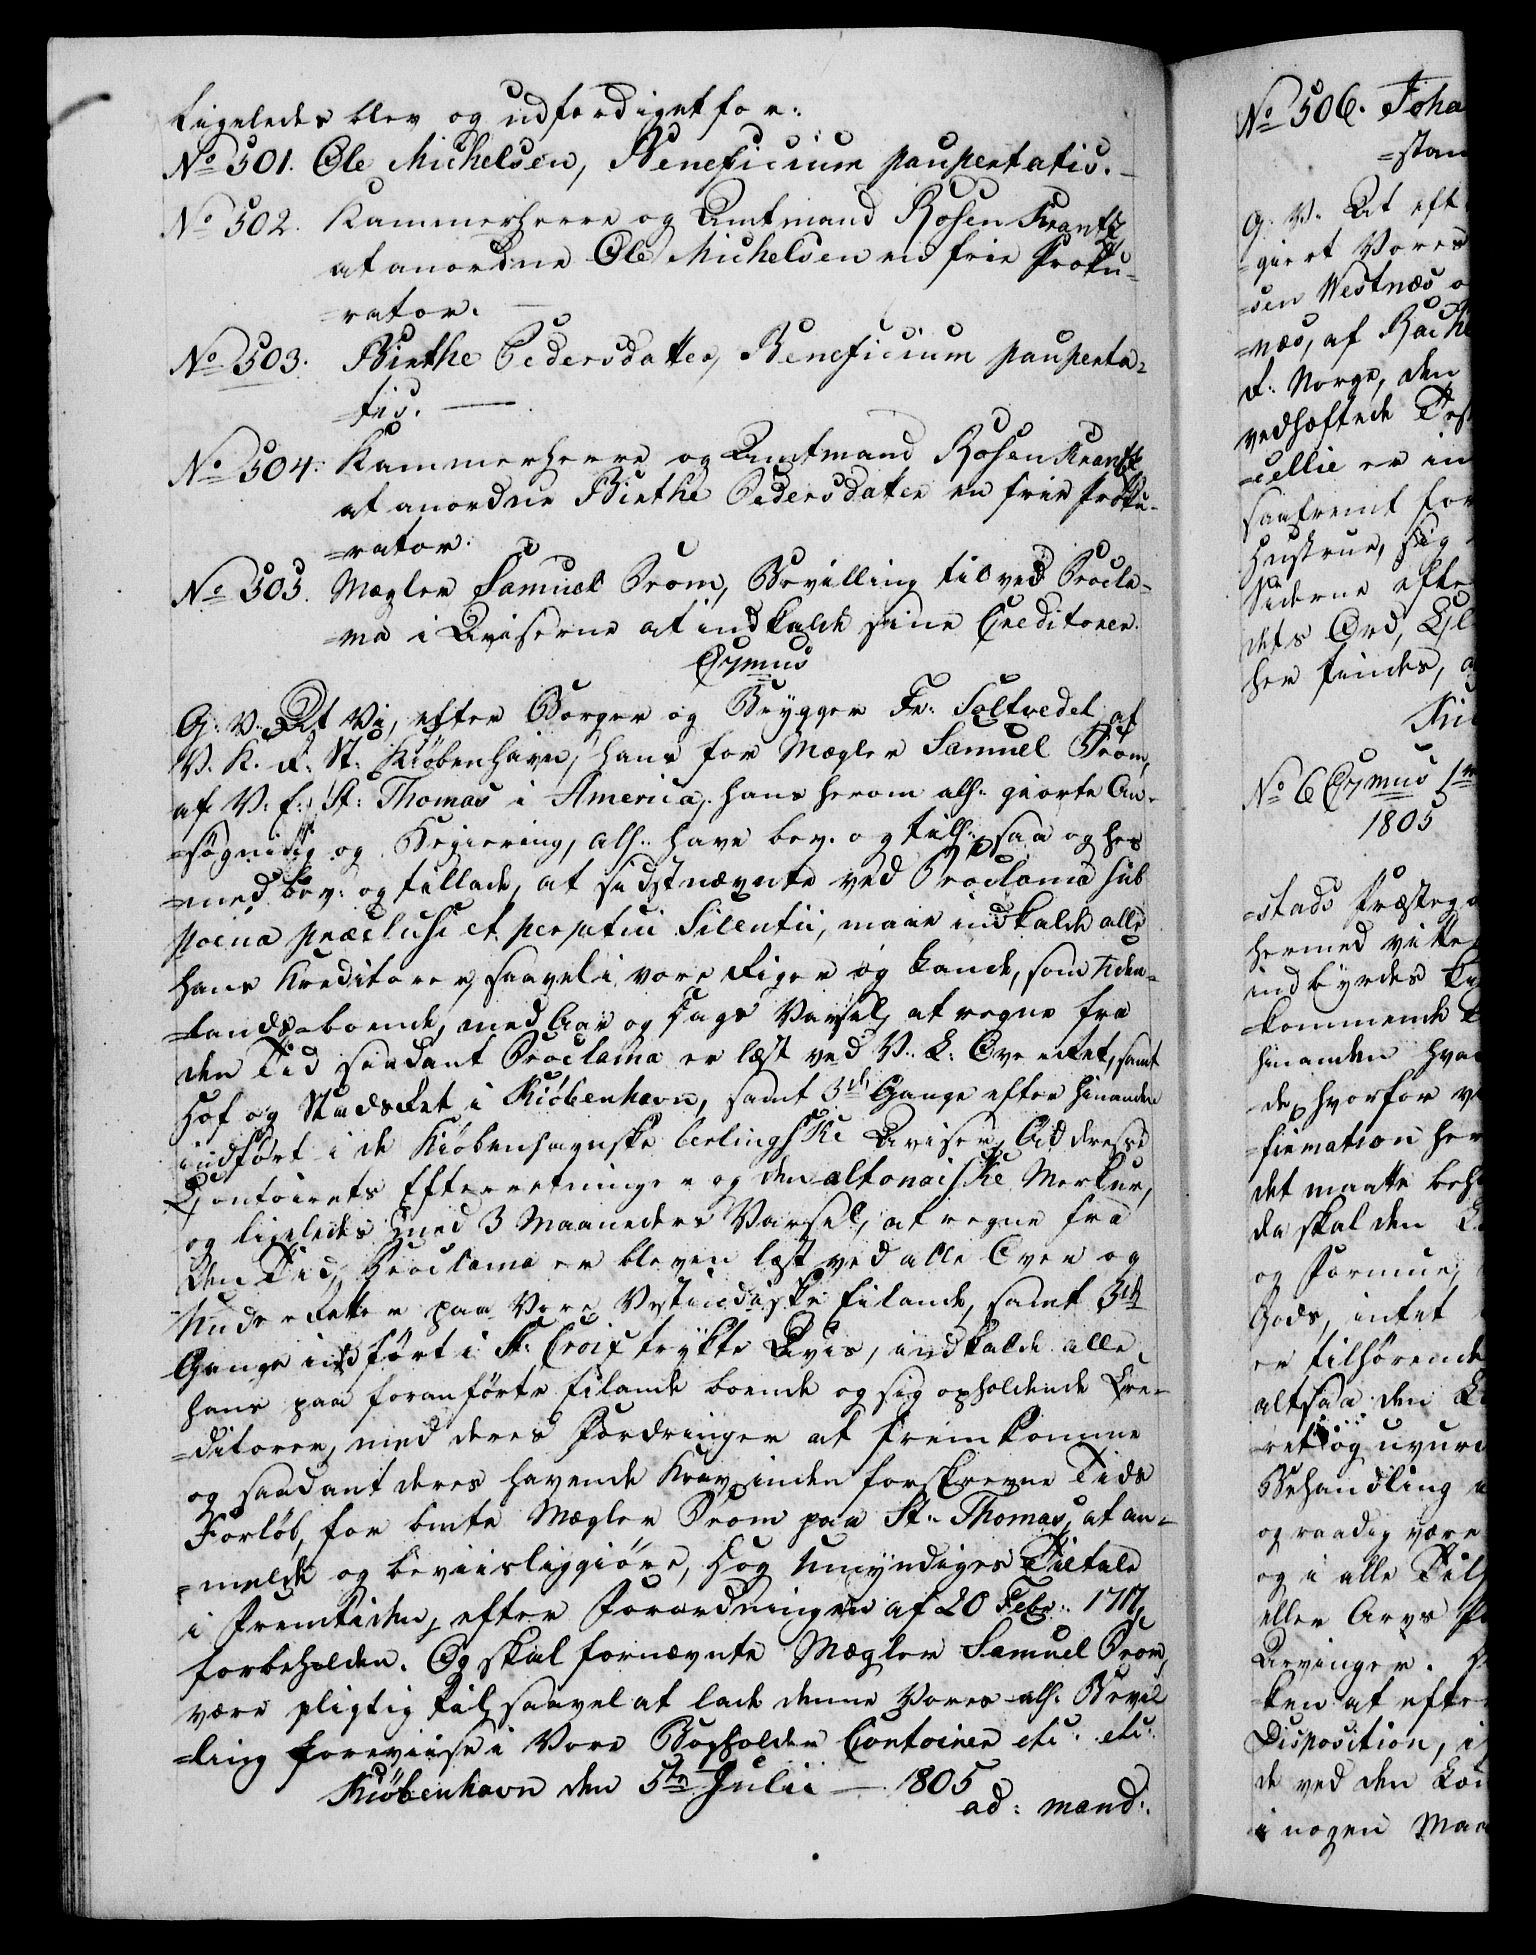 Ligeledes blev og udfærdiget for:
No 501. Ole Michelsen, Beneficium paupertatis.
No 502. Kammerherre og Amtmand Rosen Krantz
at anordne Ole Michelsen en frie Proku-
=rator.
No 503. Birthe Pedersdatter, Beneficium pauperta=
=tis.
No 504. Kammerherre og Amtmand Rosen Krantz
at anordne Birthe Pedersdatter en frie Proku-
=rator.
No 505. Mægler Samuel Prom, Bevilling til ved Procla-
=ma i Aviserne at indkalde sine Creditorer.
Cymus
G: V: At Vi, efter Borger og Brygger Fr: Toltvedet af
V. K. R. St: Kiøbenhavn, hans for Mægler Samuel Prom,
af V. E. St: Thomas i America, hans herom alh: giorte An-
=søgning og Begiering, alh: have bev. og tilh: saa og her
=med bev: og tillade, at sidstnævnte ved Proclama sub
poena præclusi et perpetui Silentii, maae indkalde alle
hans Kreditorer, saavel i vore Riger og Lande, som Uden-
=lands-boende, med Aar og Dags Varsel, at regne fra
den Tid saadant Proclama er læst ved V. L: Over Ret, samt
Hof og Stads Ret i Kiøbenhavn, samt 3de Gange efter hinanden
indført i de Kiøbenhavnske berlingske Aviser, Addresse
Contoirets Efterretninger og den altonaiske Merkur,
og ligeledes med 3 Maaneders Varsel, at regne fra
den Tid, Proclama er bleven læst ved alle Over og
Under Retter paa Vore Vestindiske Eilande, samt 3de
Gange indført i St: Croix trykte Avis, indkalde alle
hans paa foranførte Eilande boende og sig opholdende Cre-
=ditorer, med deres Fordringer at fremkomme
og saadant deres havende Krav inden forskrevne Tids
Forløb, for bemte Mægler Prom paa St: Thomas, at an-
=melde og beviisliggiøre, dog Umyndiges Tiltale
i Fremtiden, efter Forordningen af 20 Febr: 1717,
forbeholden. Og skal fornævnte Mægler Samuel Prom,
være pligtig til, saavel at lade denne Vores alh: Bevil
=ling foreviise i Vore Bogholder Contoirer etc: etc:
Kiøbenhavn den 5te Julii - 1805
ad: mand:
No 506. Joha
=stan
G. V. At eft
=giert Vores
=sen Westnæs o
=næs, af Rachl
R: Norge, den
vedhæftede Test
=cellie er in
saafremt for
Hustrue, sig
Siderne efte
dets Ord,
her findes, a
No 6 Cymus 1
1805
=stads Præsteg
hermed vitte
indbyrdes
=kommende
hinanden hva
de, hvorfor v
=firmation her
det maatte beh
da skal den
og Formue,
Gods, intet
er tilhørende
altsaa den
ret og uvurd
Behandling
og raadig være
og i alle Til
eller Arvs
Arvinger.
=ken at efte
Disposition, i
de ved den
i nogen Maa